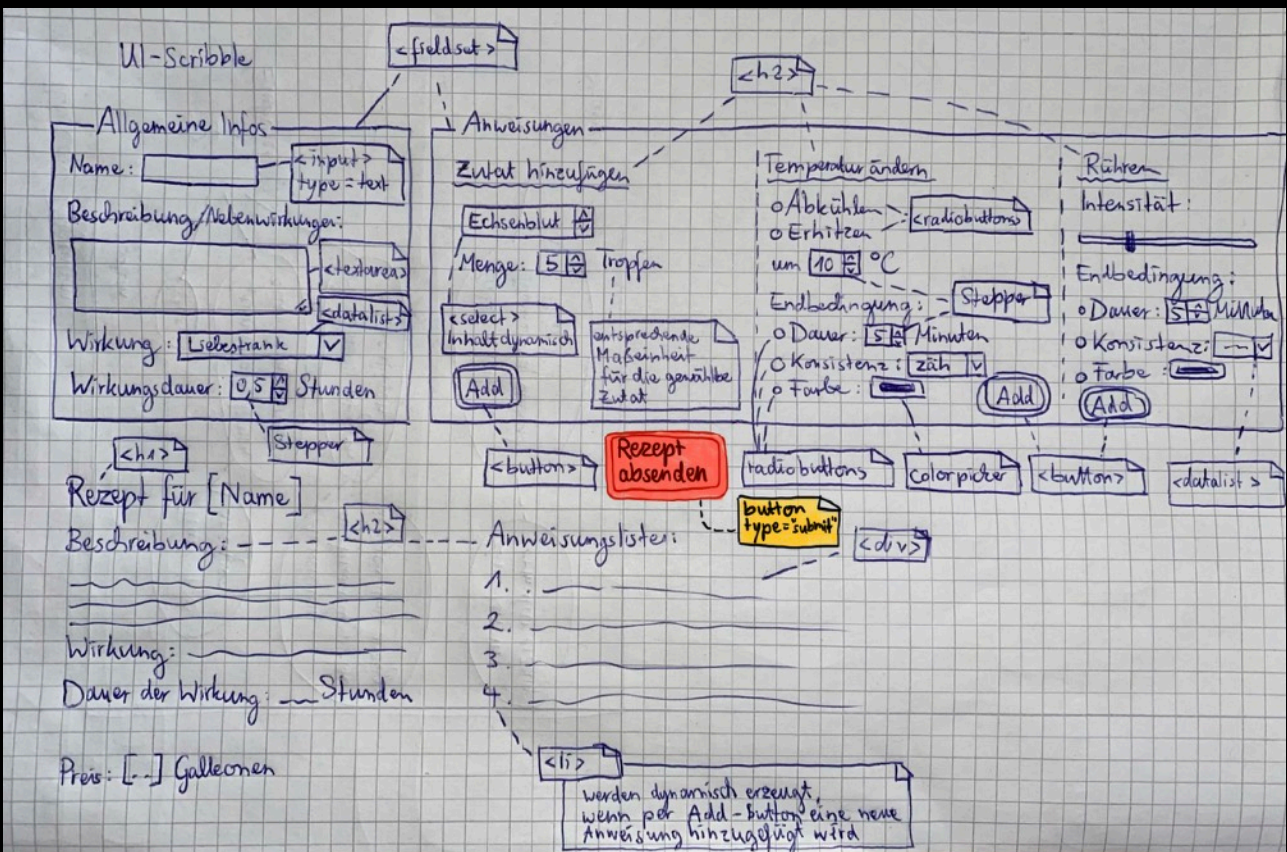 UI-Scribble
<fieldset>
<h2>
Allgemeine Infos
Name:
<input>
type=text
Beschreibung/Nebenwirkungen:
<textarea>
<datalist>
Wirkung: Liebestrank
Wirkungsdauer: 0,5 Stunden
Stepper
Anweisungen
Zutat hinzufügen
Echsenblut
Menge: 5 Tropfen
<select>
Inhalt dynamisch
entsprechende
Maßeinheit
für die gewählte
Zutat
Add
<button>
Temperatur ändern
Abkühlen
Erhitzen
<radiobuttons>
um 10 °C
Stepper
Endbedingung:
Dauer: 5 Minuten
Konsistenz: zäh
Farbe:
Add
radiobuttons
colorpicker
Rühren
Intensität:
Endbedingung:
Dauer: 5 Minuten
Konsistenz: ---
Farbe:
Add
<button>
<datalist>
Rezept
absenden
button
type="submit"
<h1>
Rezept für [Name]
<h2>
Beschreibung:
Wirkung:
Dauer der Wirkung: __ Stunden
Preis: [--] Galleonen
Anweisungsliste:
<div>
1.
2.
3.
4.
<li>
werden dynamisch erzeugt,
wenn per Add-Button eine neue
Anweisung hinzugefügt wird